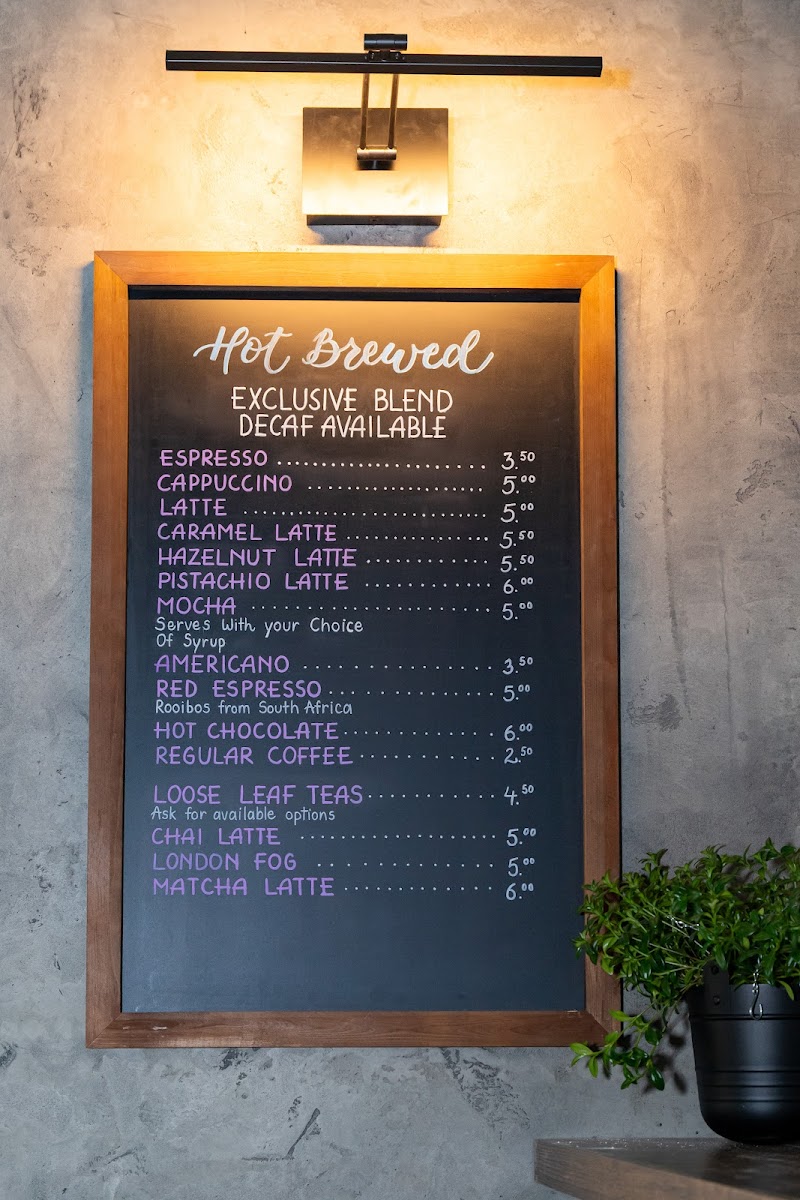 Hot Brewed
EXCLUSIVE BLEND
DECAF AVAILABLE
ESPRESSO ........................ 3.50
CAPPUCCINO ........................ 5.00
LATTE ........................ 5.00
CARAMEL LATTE .................. 5.50
HAZELNUT LATTE ............... 5.50
PISTACHIO LATTE ............ 6.00
MOCHA ........................ 5.00
Serves With your Choice
Of Syrup
AMERICANO ................ 3.50
RED ESPRESSO .............. 5.00
Rooibos from South Africa
HOT CHOCOLATE ............ 6.00
REGULAR COFFEE ........... 2.50
LOOSE LEAF TEAS ........... 4.50
Ask for available options
CHAI LATTE .................. 5.00
LONDON FOG .............. 5.00
MATCHA LATTE ............. 6.00